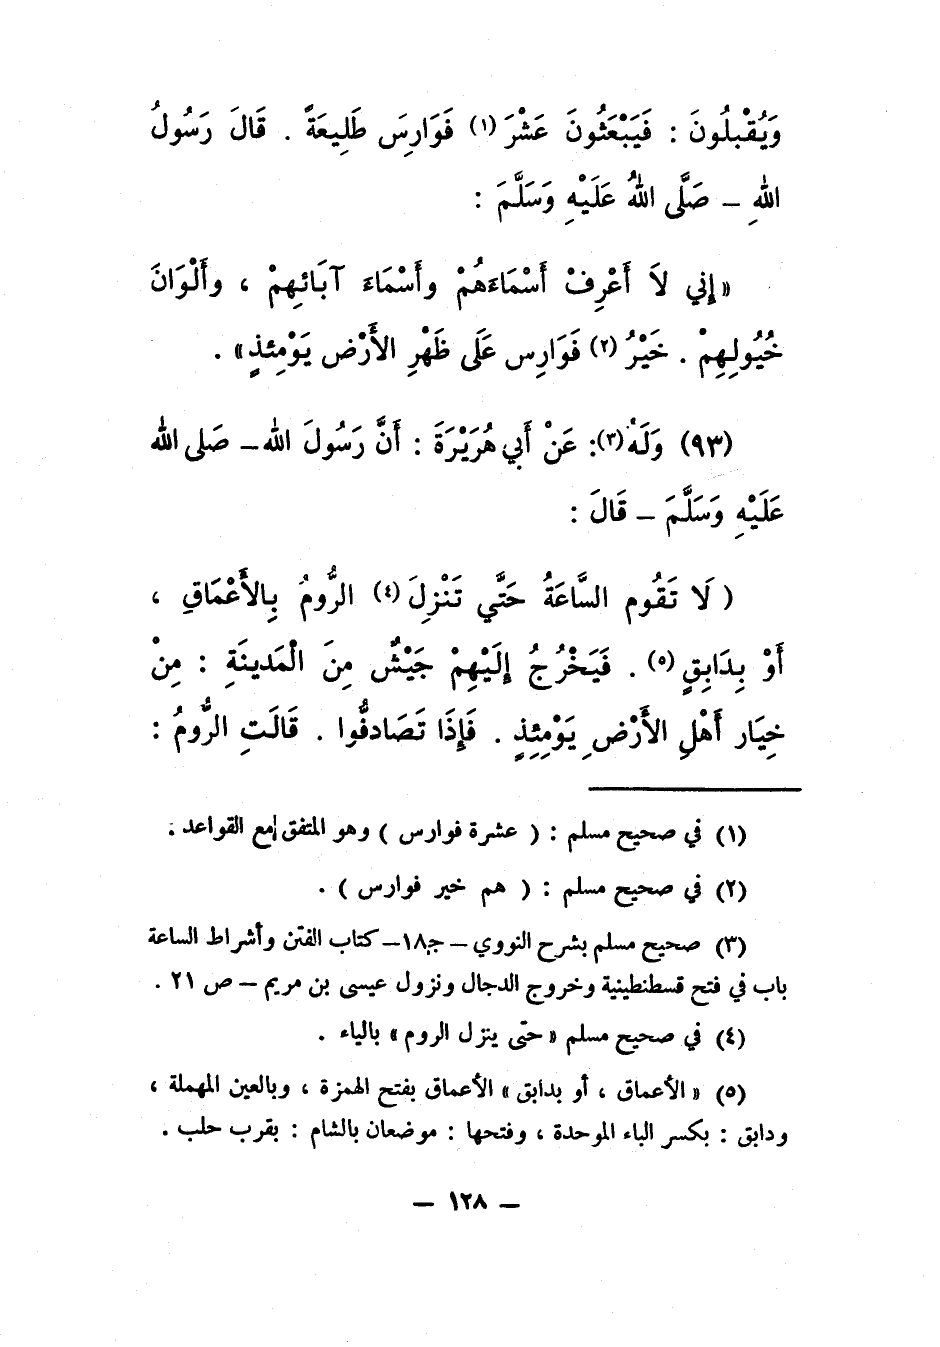 وَيُقْبِلُونَ : فَيَبْعَثُونَ عَشْرَ (١) فَوَارِسَ طَلِيعَةً . قَالَ رَسُولُ
اللهِ – صَلَّى اللهُ عَلَيْهِ وَسَلَّمَ :
« إِني لاَ أَعْرِفْ أَسْمَاءَهُمْ وأَسْمَاءَ آبَائِهِمْ ، وأَلْوَانَ
خُيُولِهِمْ . خَيْرُ (٢) فَوَارِس عَلَى ظَهْرِ الأَرْض يَوْمِئذٍ» .
(٩٣) وَلَهْ (٣): عَنْ أَبي هُرَيْرَةَ : أَنَّ رَسُولَ الله – صَلى الله
عَلَيْهِ وَسَلَّمَ – قَالَ :
( لَا تَقُوم السَّاعَةُ حَتَّي تَنْزِلَ (٤) الرُّومُ بِالأَعْمَاقِ ،
أَوْ بِدَابِقٍ (٥) . فَيَخْرُجُ إِلَيْهِمْ جَيْشٌ مِنَ الْمَدينَةِ : مِنْ
خِيَار أَهْلِ الأَرْضِ يَوْمِئِذٍ . فَإِذَا تَصَادفُّوا . قَالَتِ الرُّومُ :
(١) في صحيح مسلم : ( عشرة فوارس ) وهو المتفق مع القواعد .
(٢) في صحيح مسلم : ( هم خير فوارس ) .
(٣) صحيح مسلم بشرح النووي – جـ١٨ – كتاب الفتن وأشراط الساعة
باب في فتح قسطنطينية وخروج الدجال ونزول عيسى بن مريم – ص ٢١ .
(٤) في صحيح مسلم « حتى ينزل الروم » بالياء .
(٥) « الأعماق ، أو بدابق » الأعماق بفتح الهمزة ، وبالعين المهملة ،
ودابق : بكسر الباء الموحدة ، وفتحها : موضعان بالشام : بقرب حلب .
– ١٢٨ –